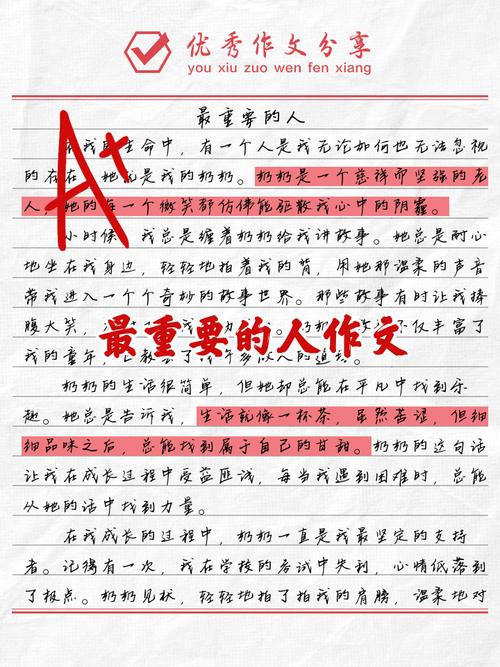 优秀作文分享
you xiu zuo wen fen xiang
最重要的人
A+
我的生命中，有一个人是我无论如何也无法忽视
的存在，她就是我的奶奶。奶奶是一个慈祥而坚强的老
人，她的每一个微笑都仿佛能驱散我心中的阴霾。
小时候，我总是缠着奶奶给我讲故事。她总是耐心
地坐在我身边，轻轻地拍着我的背，用她那温柔的声音
带我进入一个个奇妙的故事世界。那些故事有时让我捧
腹大笑，
不仅丰富了
我的童年，
最重要的人作文
奶奶的生活很简单，但她却总能在平凡中找到乐
趣。她总是告诉我，生活就像一杯茶，虽然苦涩，但细
细品味之后，总能找到属于自己的甘甜。奶奶的这句话
让我在成长过程中受益匪浅，每当我遇到困难时，总能
从她的话中找到力量。
在我成长的过程中，奶奶一直是我最坚定的支持
者。记得有一次，我在学校的考试中失利，心情低落到
了极点。奶奶见状，轻轻地拍了拍我的肩膀，温柔地对